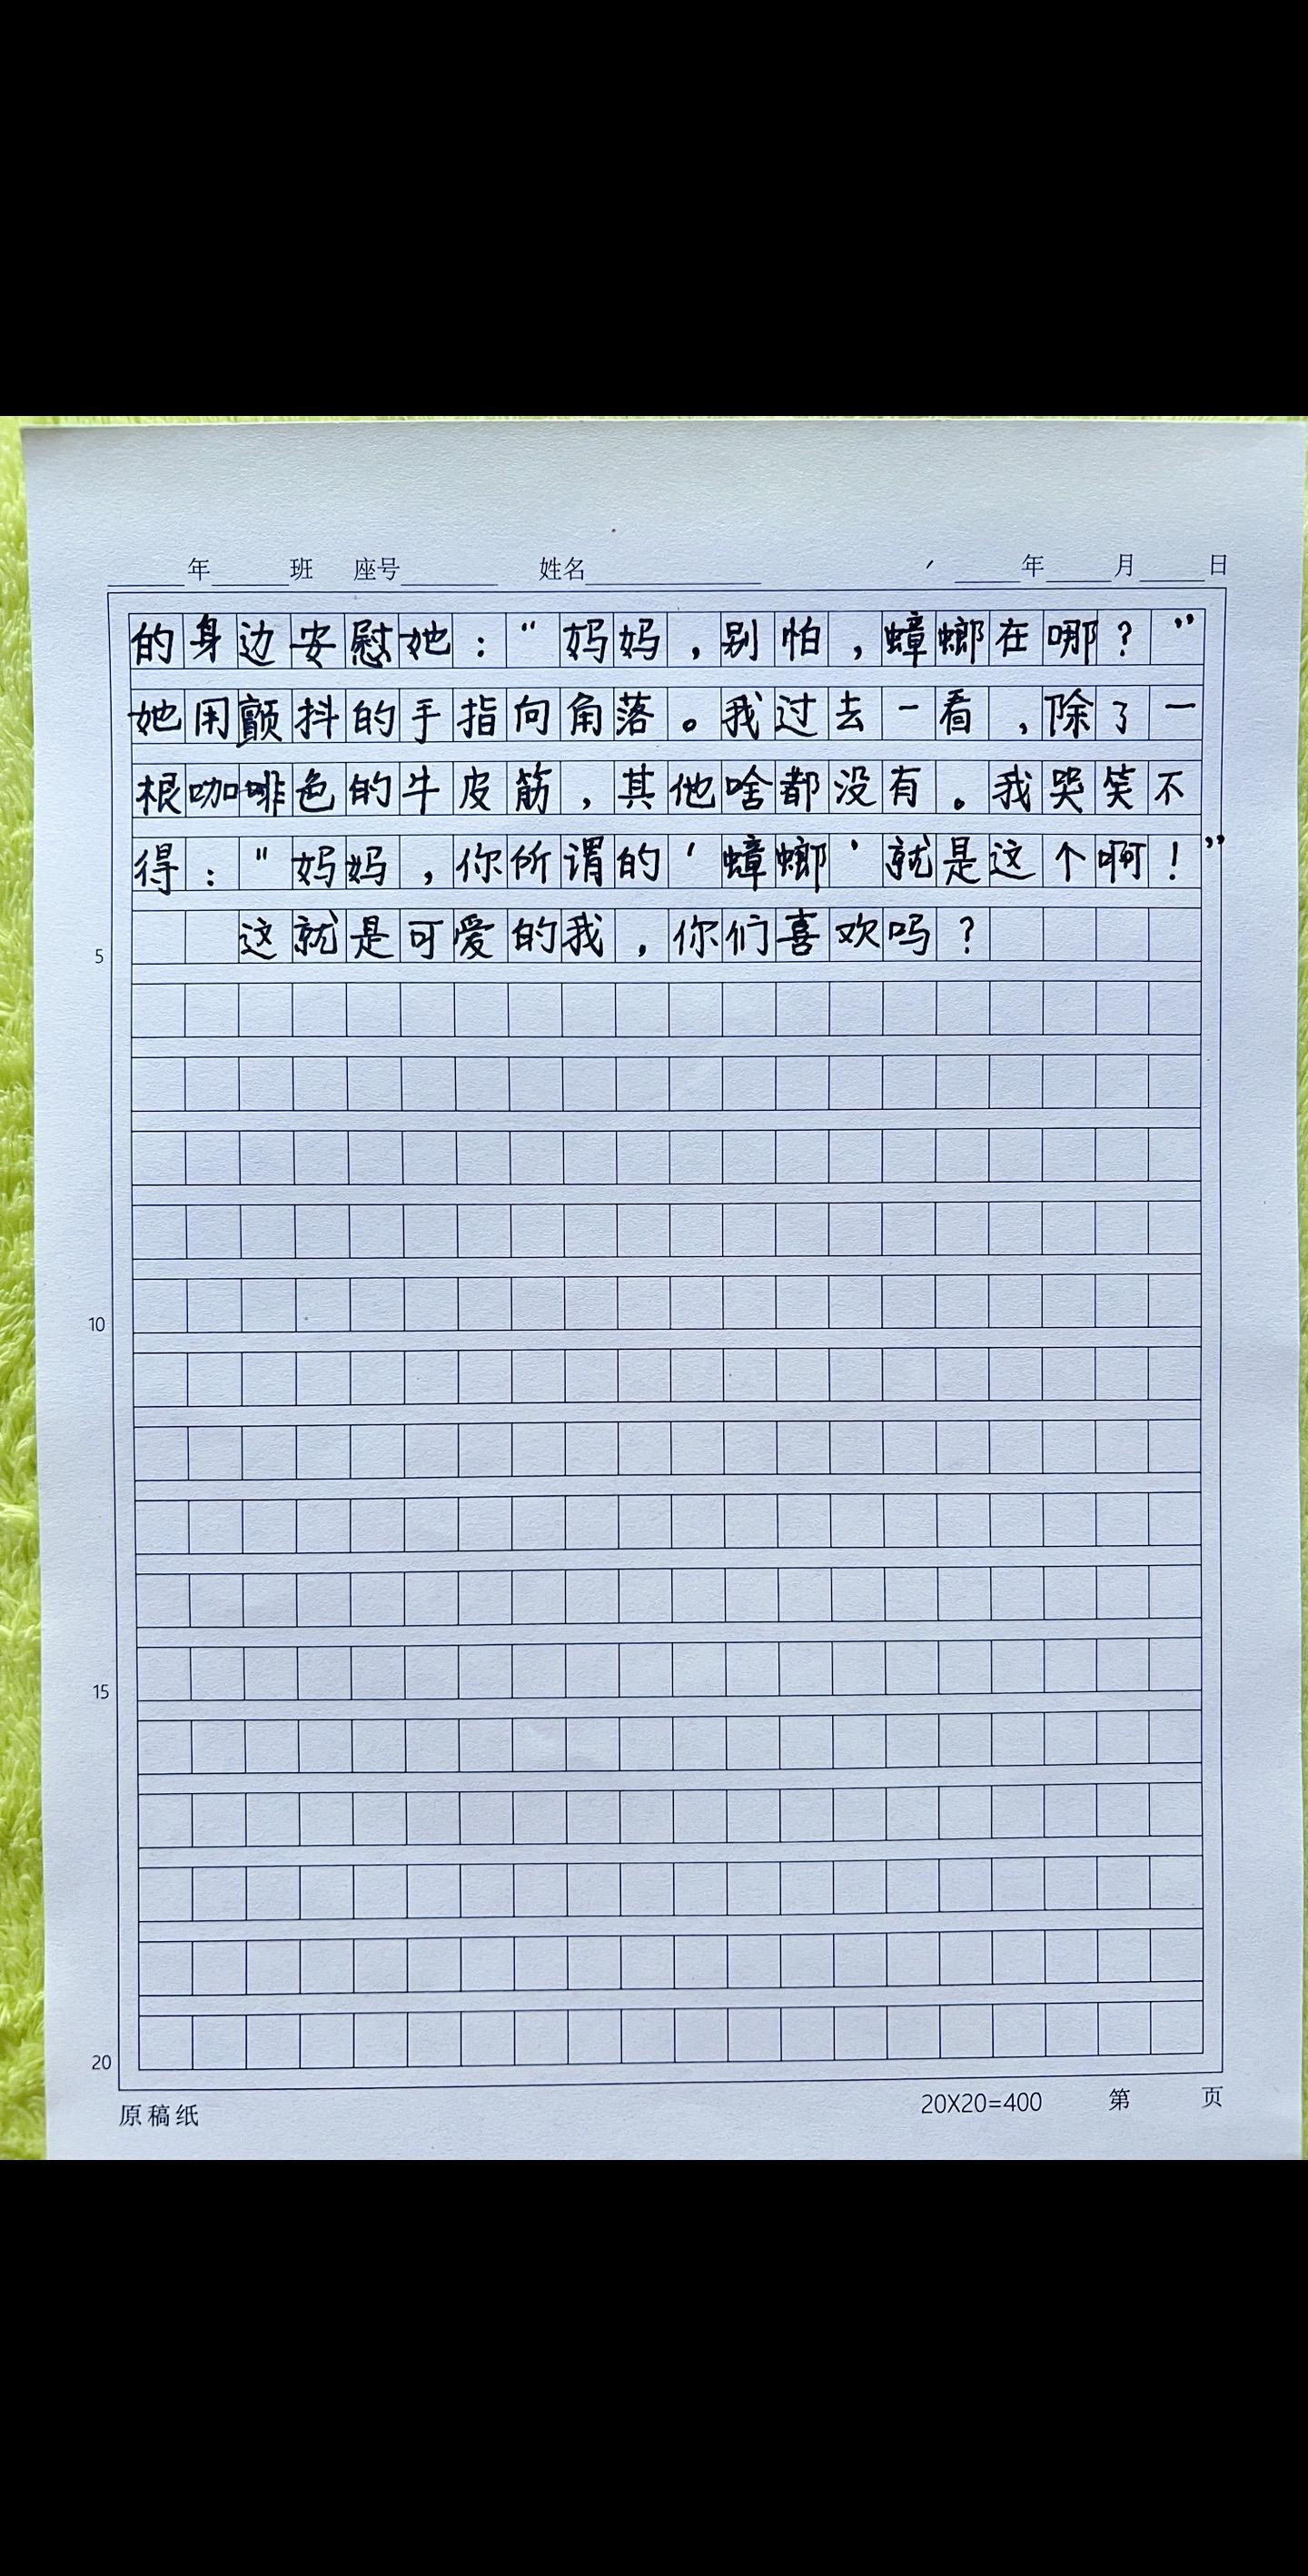 年 班 座号 姓名 年 月 日
的身边安慰她：“妈妈，别怕，蟑螂在哪？”
她用颤抖的手指向角落。我过去一看，除了一
根咖啡色的牛皮筋，其他啥都没有。我哭笑不
得：“妈妈，你所谓的‘蟑螂’就是这个啊！”
这就是可爱的我，你们喜欢吗？
5
10
15
20
原稿纸 20X20=400 第 页